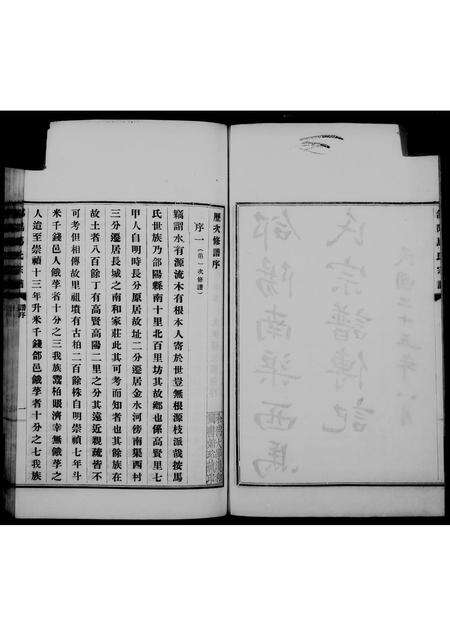 歷次修譜序
序一（第一次修譜）
竊謂水有源流木有根本人寄於世豈無根源枝派哉按馬
氏世族乃郃陽縣南十里北百里坊其故鄉也係高賢里七
甲人自明時長分原居故址二分遷居金水河傍南渠西村
三分遷居長城之南和家莊此其可考而知者也其餘族在
故土者八百餘丁有高賢高陽二里之分其遠近親疏皆不
可考但相傳故里祖墳有古柏二百餘株自明崇禎七年斗
米千錢邑人餓莩者十分之三我族鬻柏賑濟幸無餓莩之
人迨至崇禎十三年升米千錢郃邑餓莩者十分之七我族
譜序
郃陽南渠西馬
氏宗譜傳記
民國二十五年